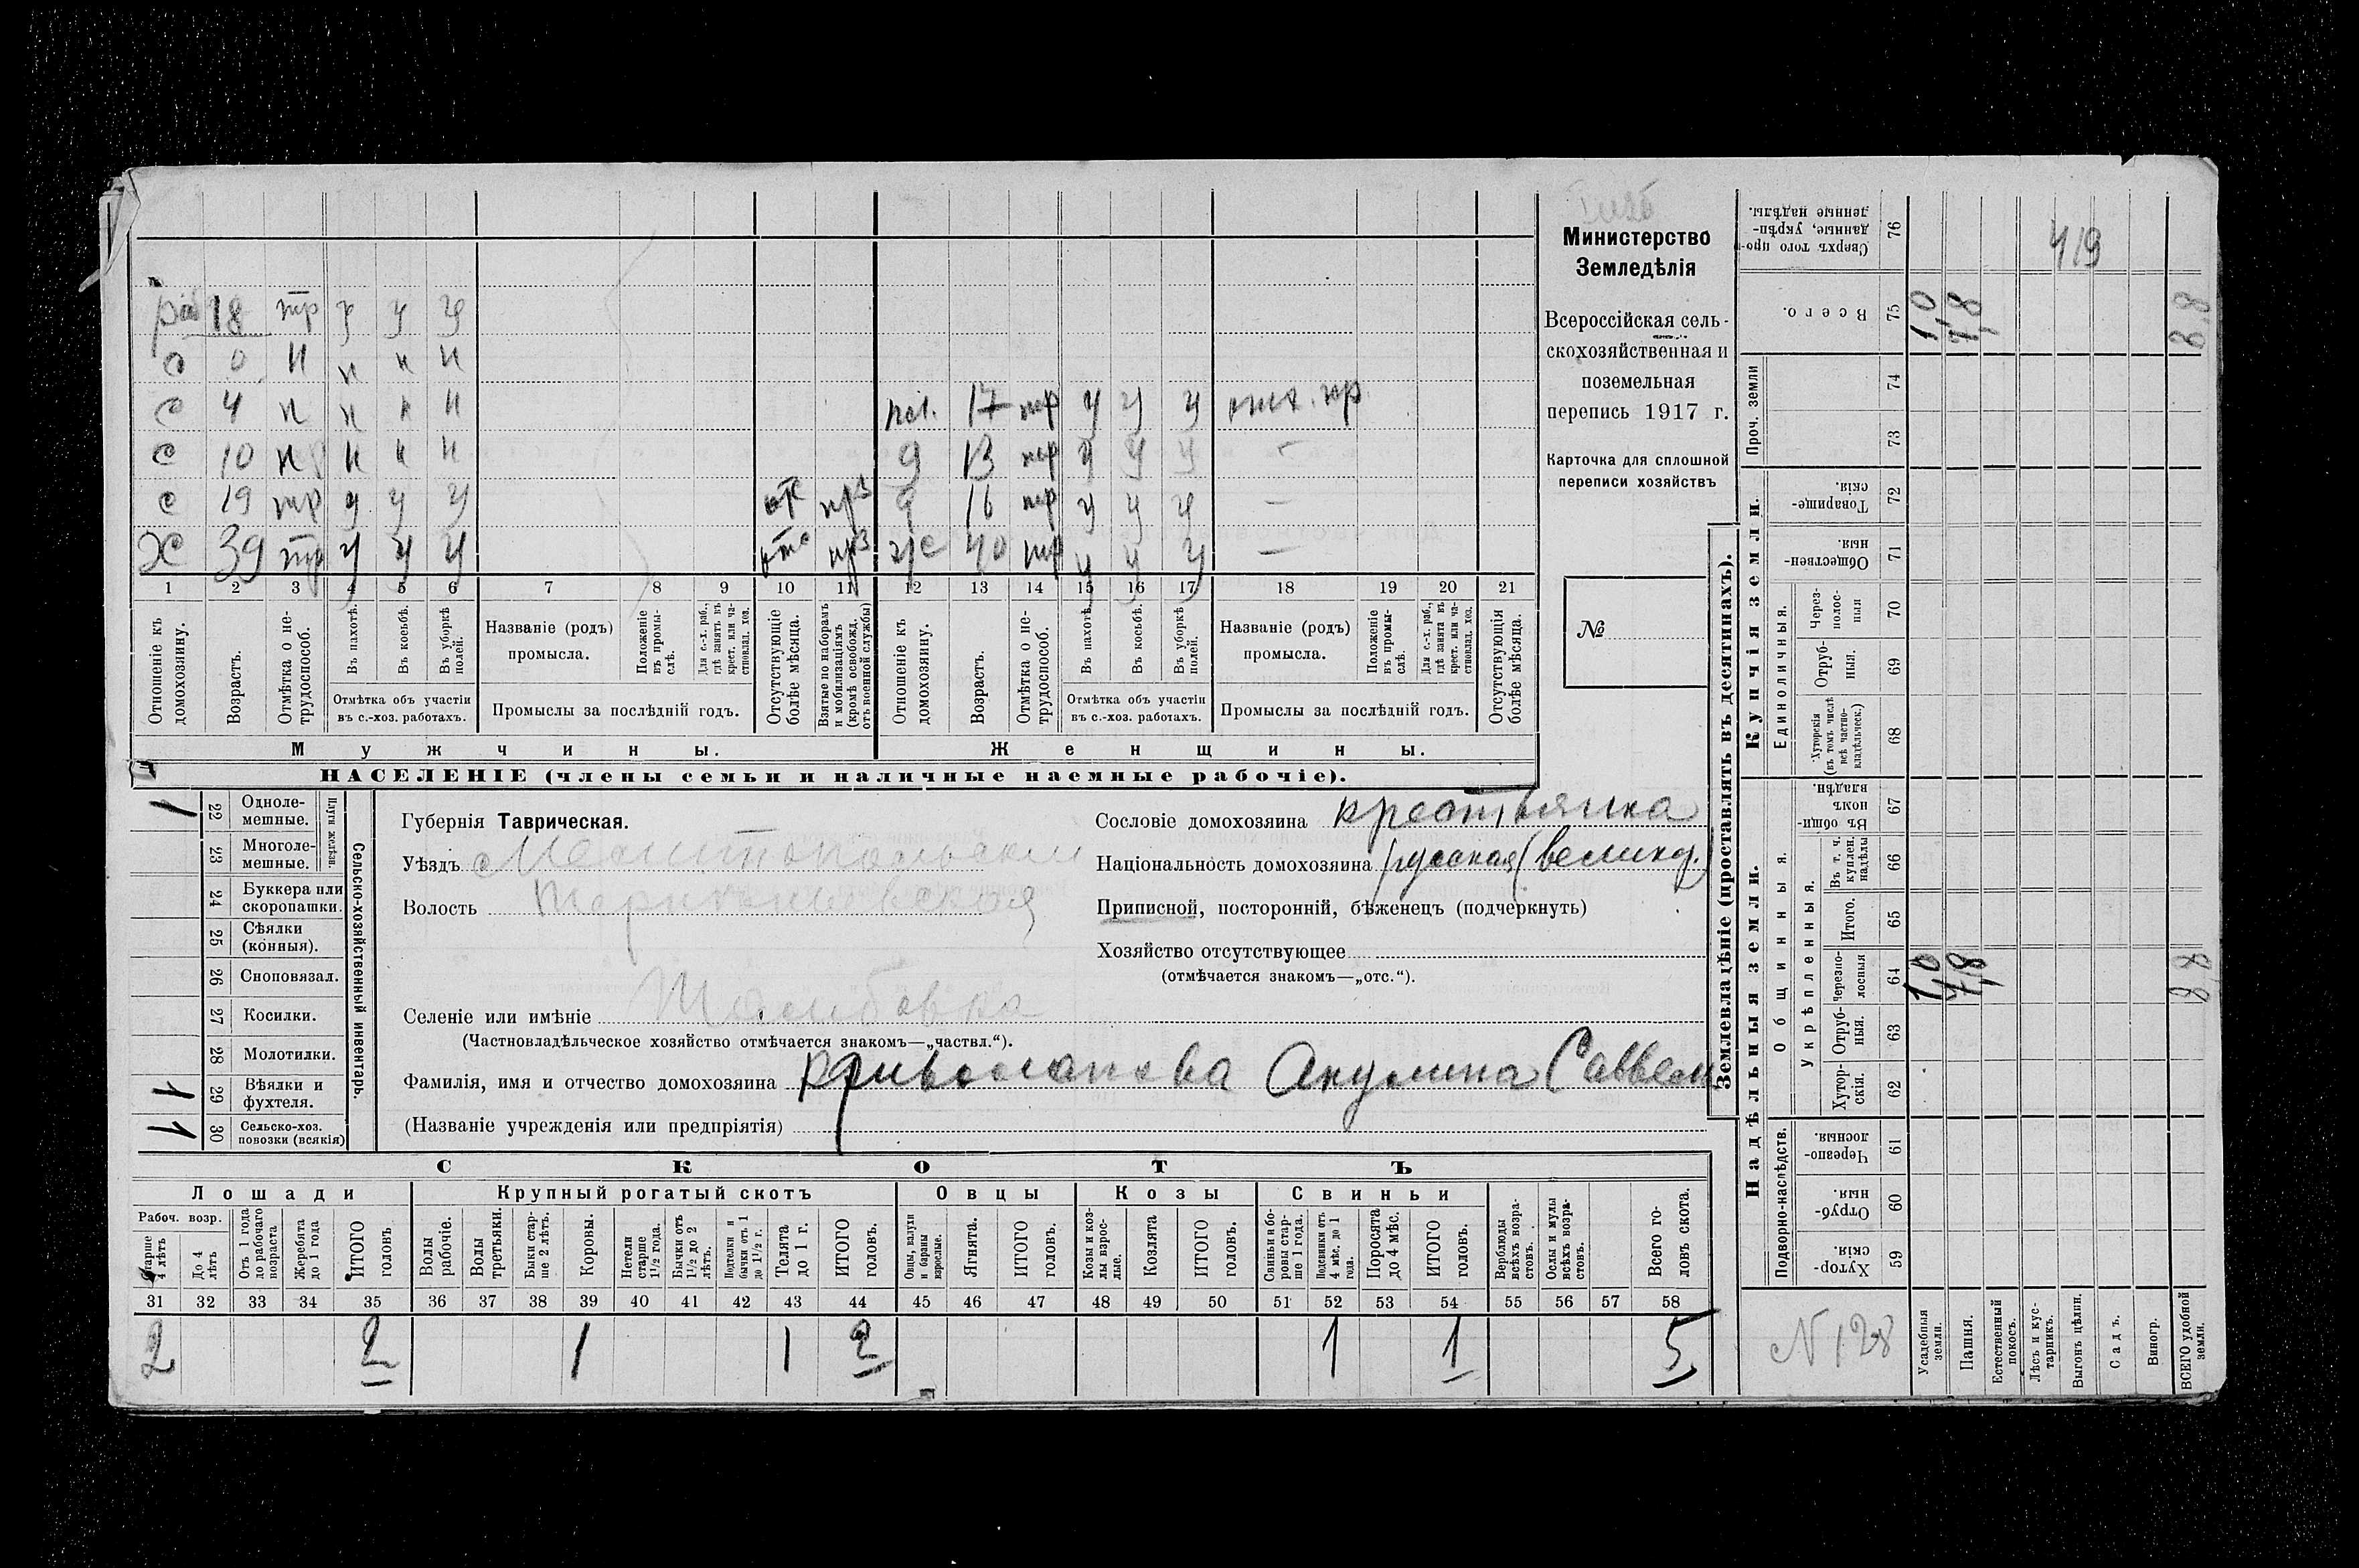 Министерство
Земледѣлія
Всероссійская сель-
скохозяйственная и
поземельная
перепись 1917 г.
Карточка для сплошной
переписи хозяйствъ
№
ра 18 тр у у у
с 0 н н н н
с 4 н н н н
раб. 17 тр у у у
с 10 н н н н
д 13 тр у у у —
с 19 тр у у у отс прз
д 16 тр у у у —
Х 39 тр у у у отс прз
ж 40 тр у у у —
1 2 3 4 5 6 7 8 9 10 11 12 13 14 15 16 17 18 19 20 21
Отношеніе къ домохозяину.
Возрастъ.
Отмѣтка о не-трудоспособ.
Въ пахотѣ.
Въ косьбѣ.
Въ уборкѣ полей.
Отмѣтка объ участіи въ с.-хоз. работахъ.
Названіе (родъ) промысла.
Положеніе въ промы-слѣ.
Для с.-х. раб., гдѣ занятъ въ крест. или ча-стновлад. хоз.
Промыслы за послѣдній годъ.
Отсутствующіе болѣе мѣсяца.
Взятые по наборамъ и мобилизаціямъ (кромѣ освобожд. отъ военной службы)
Отношеніе къ домохозяину.
Возрастъ.
Отмѣтка о не-трудоспособ.
Въ пахотѣ.
Въ косьбѣ.
Въ уборкѣ полей.
Отмѣтка объ участіи въ с.-хоз. работахъ.
Названіе (родъ) промысла.
Положеніе въ промы-слѣ.
Для с.-х. раб., гдѣ занята въ крест. или ча-стновлад. хоз.
Промыслы за послѣдній годъ.
Отсутствующія болѣе мѣсяца.
Мужчины.
Женщины.
НАСЕЛЕНІЕ (члены семьи и наличные наемные рабочіе).
Сельско-хозяйственный инвентарь.
Плуги желѣзн.
1 22 Одноле-мешные.
23 Многоле-мешные.
24 Буккера или скоропашки.
25 Сѣялки (конныя).
26 Сноповязал.
27 Косилки.
28 Молотилки.
1 29 Вѣялки и фухтеля.
1 30 Сельско-хоз. повозки (всякія)
Губернія Таврическая.
Уѣздъ Мелитопольскій
Волость
Селеніе или имѣніе
(Частновладѣльческое хозяйство отмѣчается знакомъ—„частвл.“).
Фамилія, имя и отчество домохозяина Кривошапкова Акулина Саввеш
(Названіе учрежденія или предпріятія)
Сословіе домохозяина крестьянка
Національность домохозяина русская (великор.)
Приписной, посторонній, бѣженецъ (подчеркнуть)
Хозяйство отсутствующее
(отмѣчается знакомъ—„отс.“).
СКОТЪ
Лошади
Крупный рогатый скотъ
Овцы
Козы
Свиньи
Рабоч. возр.
Старше 4 лѣтъ
До 4 лѣтъ
Отъ 1 года до рабочаго возраста
Жеребята до 1 года
ИТОГО головъ
Волы рабочіе.
Волы третьяки.
Быки стар-ше 2 лѣтъ.
Коровы.
Нетели старше 1½ года.
Бычки отъ 1½ до 2 лѣтъ.
Подтелки и бычки отъ 1 до 1½ г.
Телята до 1 г.
ИТОГО головъ.
Овцы, валухи и бараны взрослые.
Ягнята.
ИТОГО головъ.
Козы и коз-лы взрос-лые.
Козлята
ИТОГО головъ.
Свиньи и бо-ровы стар-ше 1 года.
Подсвинки отъ 4 мѣс. до 1 года.
Поросята до 4 мѣс.
ИТОГО головъ.
Верблюды всѣхъ возра-стовъ.
Ослы и мулы всѣхъ возра-стовъ.
Всего го-ловъ скота.
31 32 33 34 35 36 37 38 39 40 41 42 43 44 45 46 47 48 49 50 51 52 53 54 55 56 57 58
2 2 1 1 2 1 1 5
Землевладѣніе (проставлять въ десятинахъ).
Купчія земли.
Надѣльныя земли.
Проч. земли
Единоличныя.
Общинныя.
Укрѣпленныя.
Подворно-наслѣдств.
Сверхъ того про-данные, укрѣп-ленные надѣлы. 76
Всего. 75 1,0 7,8 8,8
74
73
Товарище-скія. 72
Обществен-ныя. 71
Через-полос-ныя 70
Отруб-ныя. 69
Хуторскія (въ томъ числѣ всѣ частно-владѣльческ.) 68
Въ общин-номъ владѣн. 67
Въ т. ч. куплен. надѣлы 66
Итого. 65
черезпо-лосныя 64 1,0 7,8 8,8
Отруб-ныя. 63
Хутор-скія. 62
Черезпо-лосныя. 61
Отруб-ныя. 60
Хутор-скія 59
419
N 128
Усадебныя земли.
Пашня.
Естественный покосъ.
Лѣсъ и кус-тарникъ.
Выгонъ цѣлин.
Садъ.
Виногр.
ВСЕГО удобной земли.